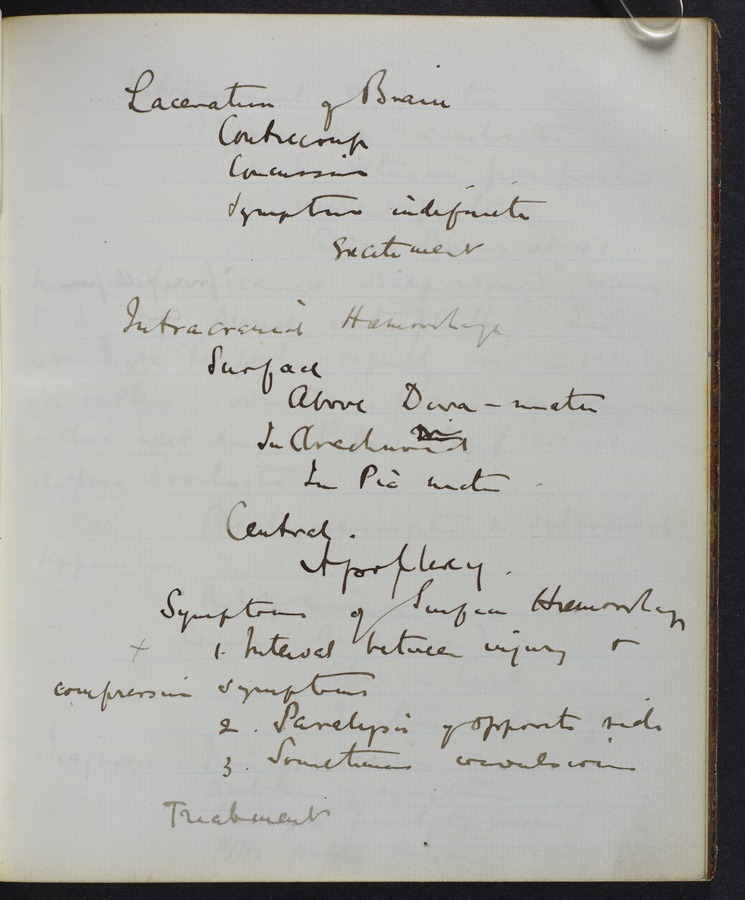 Laceration of Brain
Contrecoup
Concussion
Symptoms indefinite
Excitement
Intracranial Hæmorrhage
Surface
Above Dura-mater
In Arachnoid
In Pia mater
Central.
Apoplexy.
Symptoms of Surface Hæmorrhage
x 1. Interval between injury &
compression symptoms
2. Paralysis of opposite side
3. Sometimes convulsions
Treatment